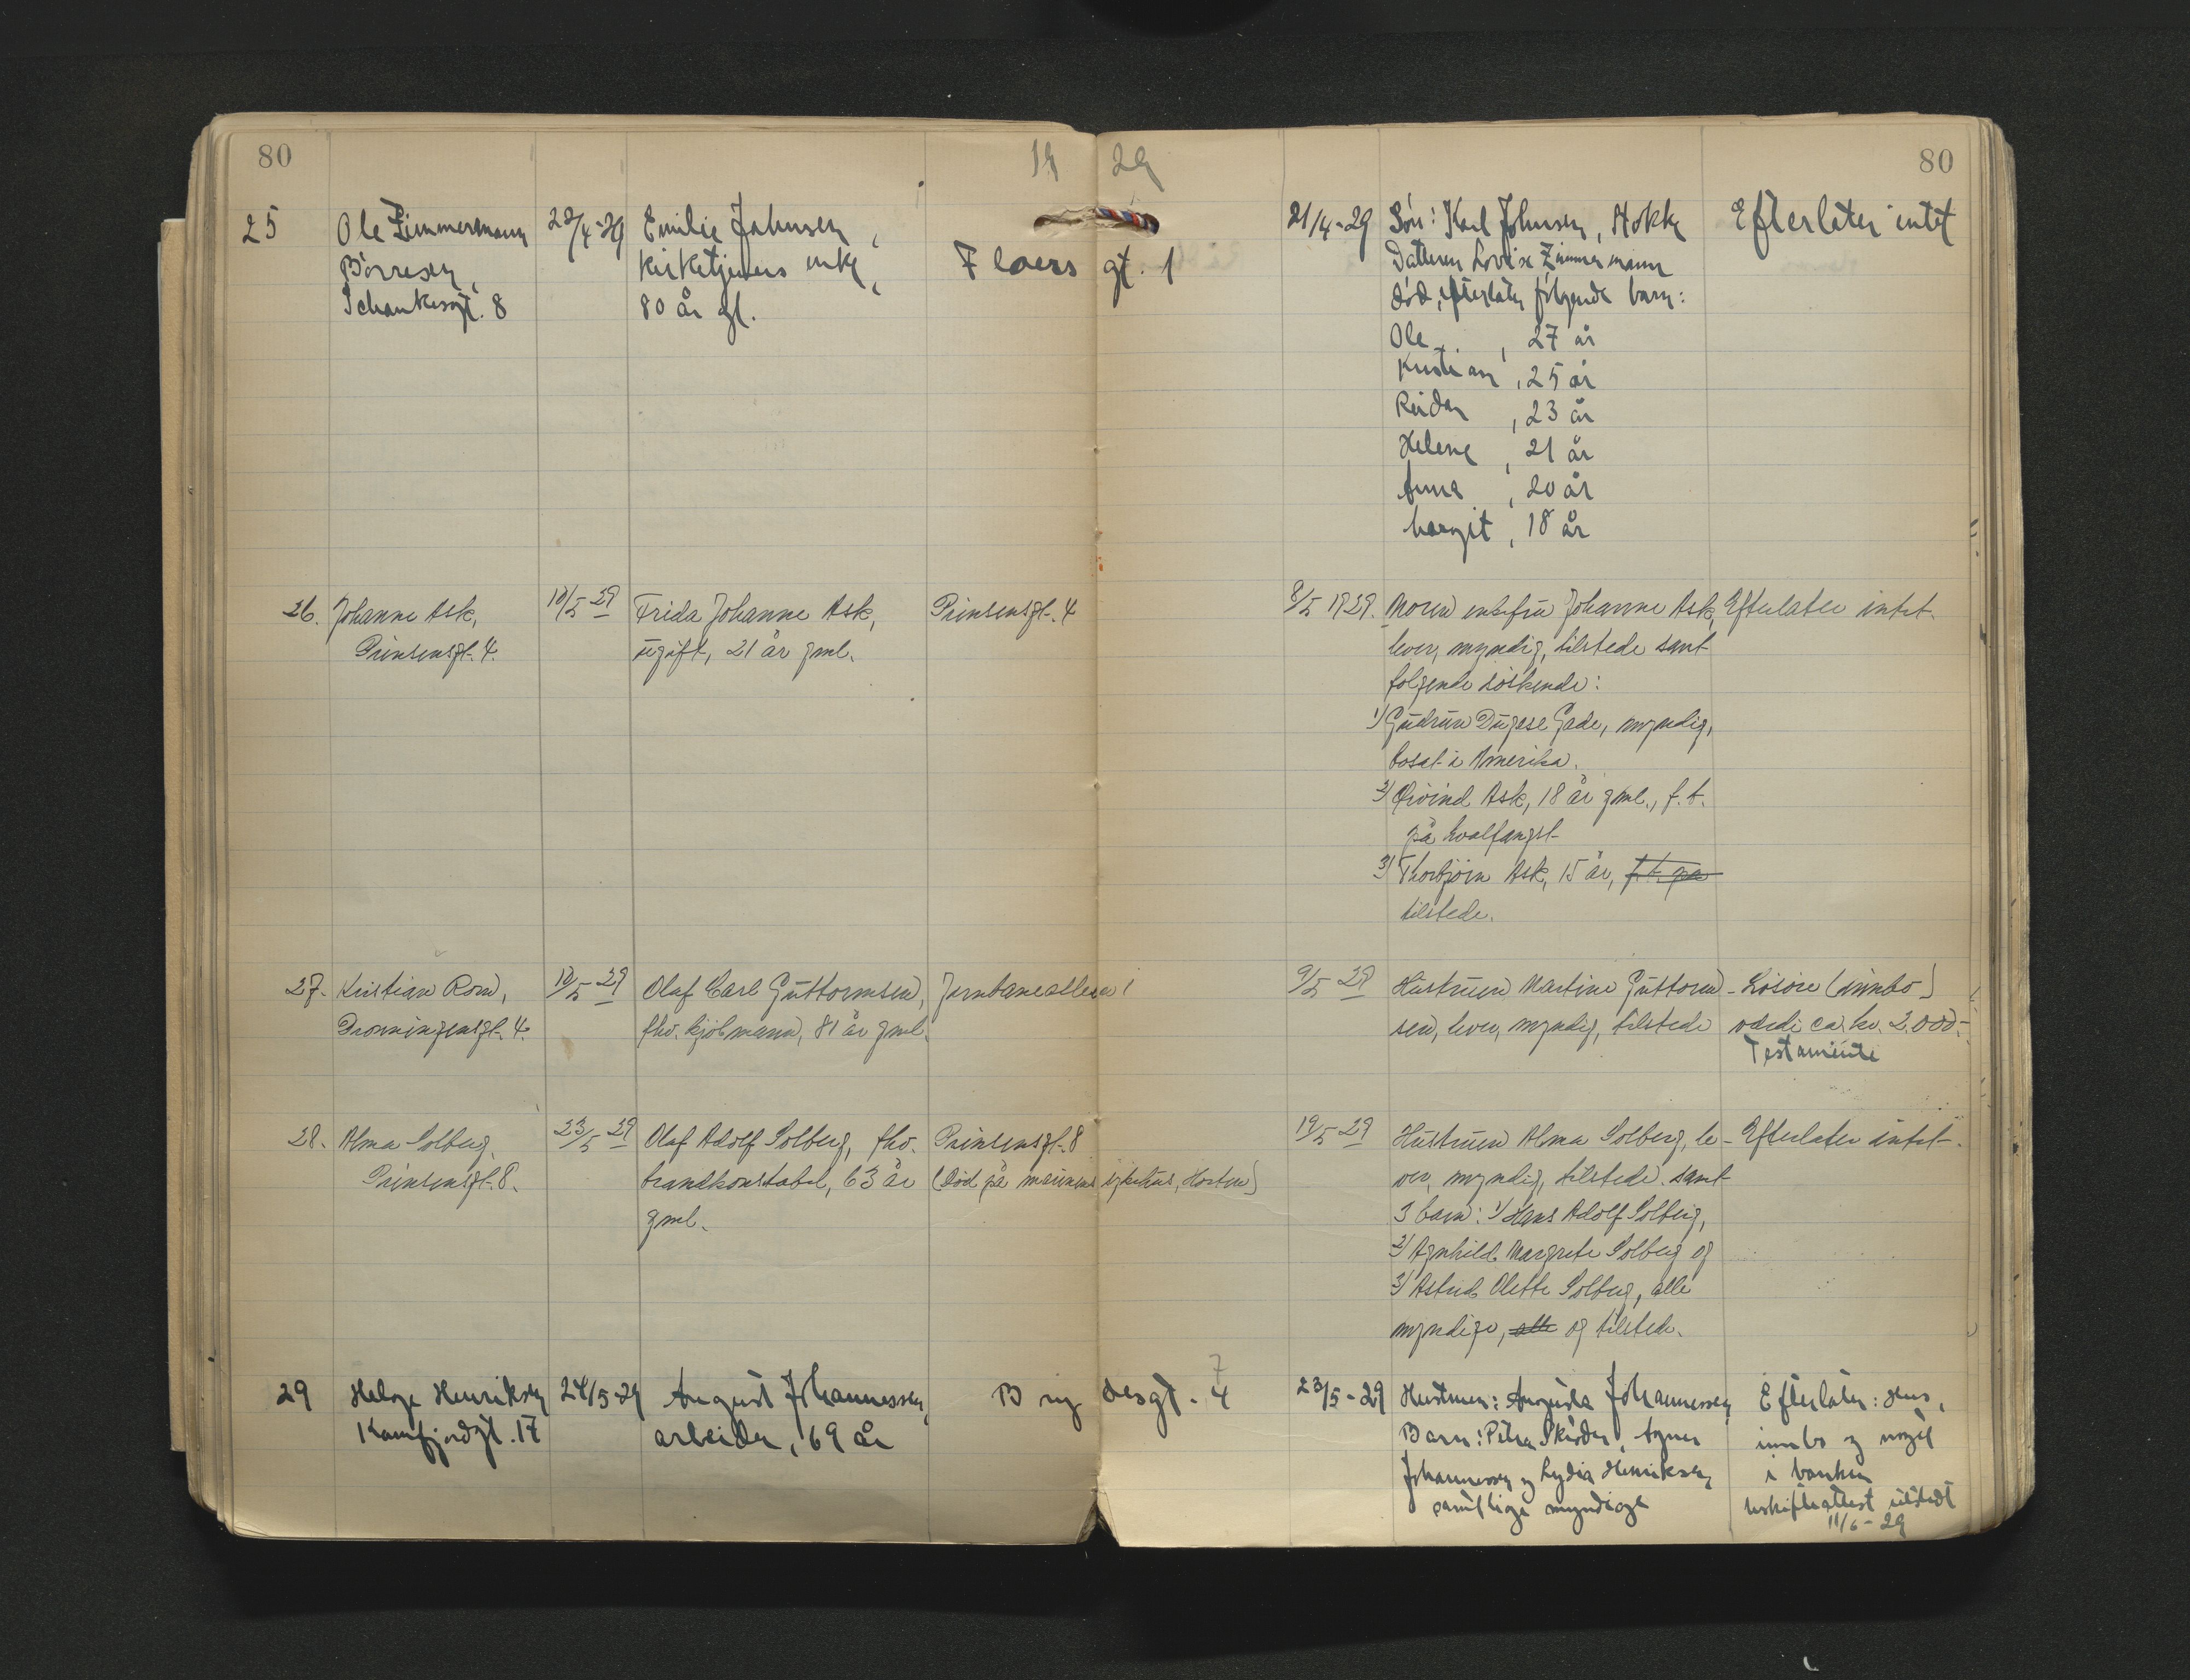 80
19 29
80
25
Ole Zimmermann
Børresen,
Schankesgt. 8
22/4-29
Emilie Johnsen,
Kirketjeners enke,
80 år gl.
Floers gt. 1
21/4-29
Søn: Karl Johnsen, Mokk
Datteren Lovise Zimmermann
død, efterlater følgende barn:
Ole, 27 år
Kristian, 25 år
Reidar, 23 år
Helene, 21 år
Anna, 20 år
Margit, 18 år
Efterlater intet
26.
Johanne Ask,
Prinsensgt. 4.
10/5 29
Frida Johanne Ask,
ugift, 21 år gml.
Prinsensgt. 4
8/5 1929.
Moren enkefru Johanne Ask,
lever, myndig, tilstede samt
følgende søskende:
1) Gudrun Gade, myndig,
bosat i Amerika.
2) Øivind Ask, 18 år gml., f.t.
på hvalfangst
3) Thorbjørn Ask, 15 år, f.t. på
tilstede.
Efterlater intet.
27.
Kristian Rom,
Dronningensgt. 4.
10/5 29
Olaf Carl Guttormsen,
fhv. kjøbmann, 81 år gml.
Jernbanealleen 1
9/5 29
Hustruen Martine Guttorm-
sen, lever, myndig, tilstede
Løsøre (innbo)
værdi ca. kr. 2.000.-
Testamente
28.
Alma Solberg,
Prinsensgt. 8.
23/5 29
Olaf Adolf Solberg, fhv.
brandkonstabel, 63 år
gml.
Prinsensgt. 8
(Død på marinens sykehus, Horten)
19/5 29
Hustruen Alma Solberg, le-
ver, myndig, tilstede. samt
3 barn: 1) Hans Adolf Solberg,
2) Agnhild Margrete Solberg og
3) Astrid Olette Solberg, alle
myndige, alle og tilstede.
Efterlater intet.
29
Helge Henriksen
Kamfjordgt. 17
24/5-29
August Johannessen,
arbeider, 69 år
Brydesgt. 4
7
23/5-29
Hustruen: Augusta Johannessen
Barn: Petra, Agnes
Johannessen og Lydia Henriksen
samtlige myndige
Efterlater: Hus,
innbo og noget
i banken
Uskifteattest utstedt
11/6-29